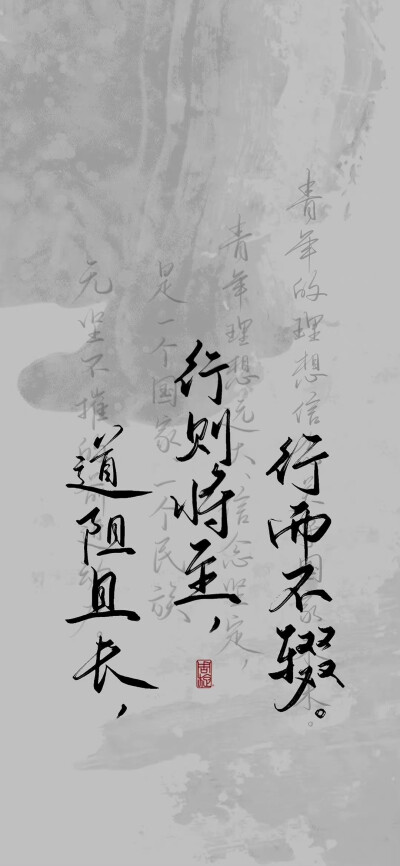 道阻且长，
行则将至，
行而不辍。
青年的理想信
青年理想远大、信念坚定，
是一个国家、一个民族
无坚不摧的